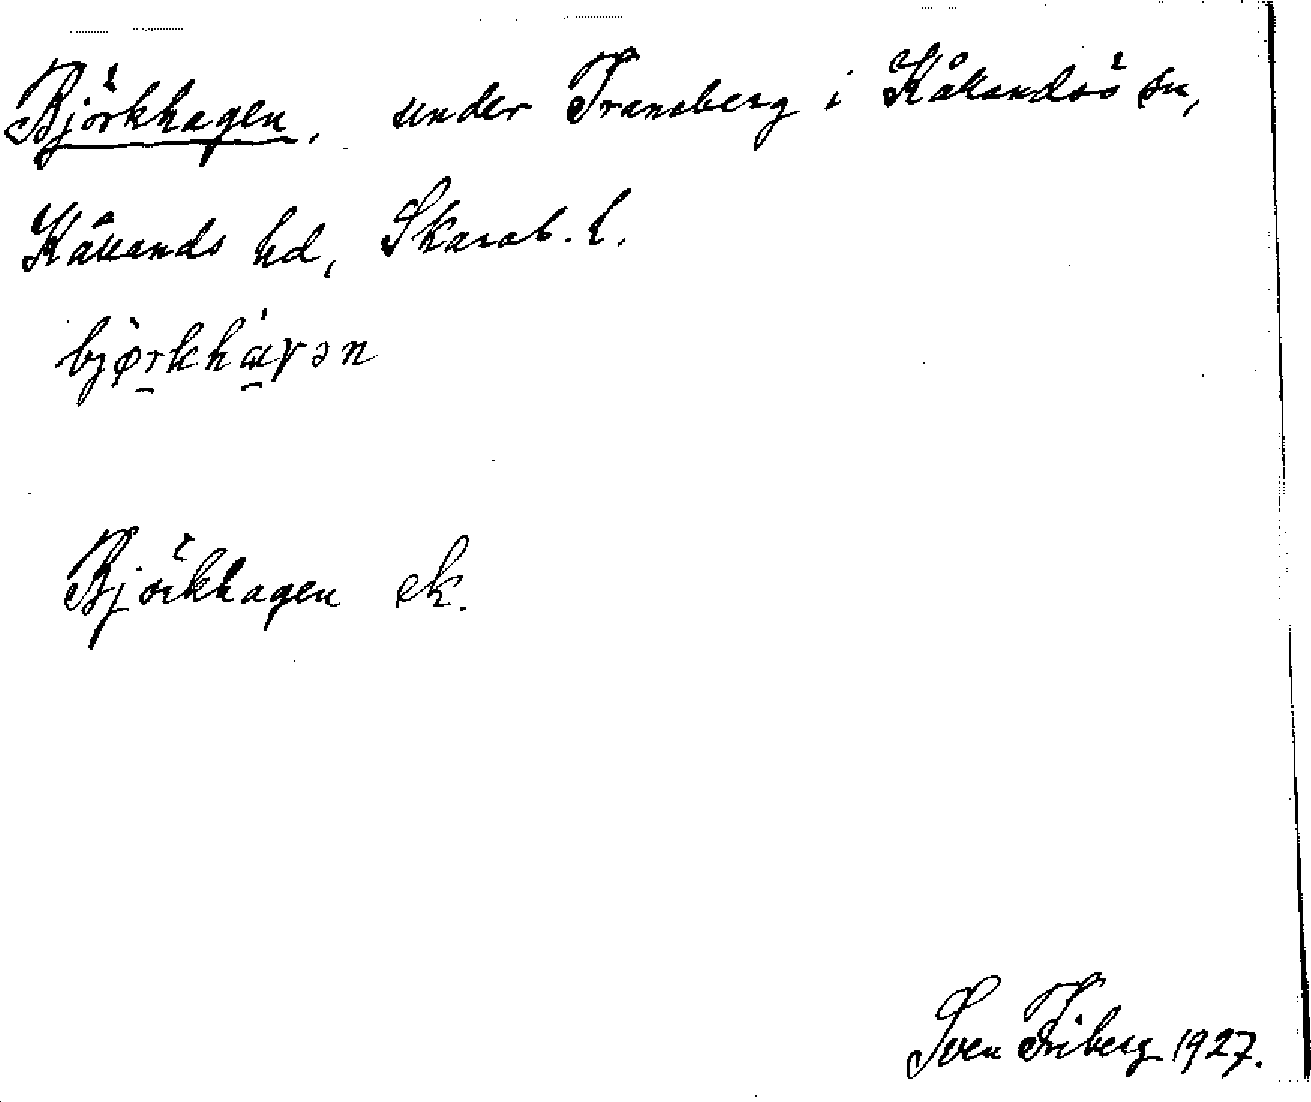 Björkhagen, under Transberg i Kållandsö sn,
Kållands hd, Skarab. l.
bjørkhɑγən
Björkhagen ek.
Sven Friberg 1927.